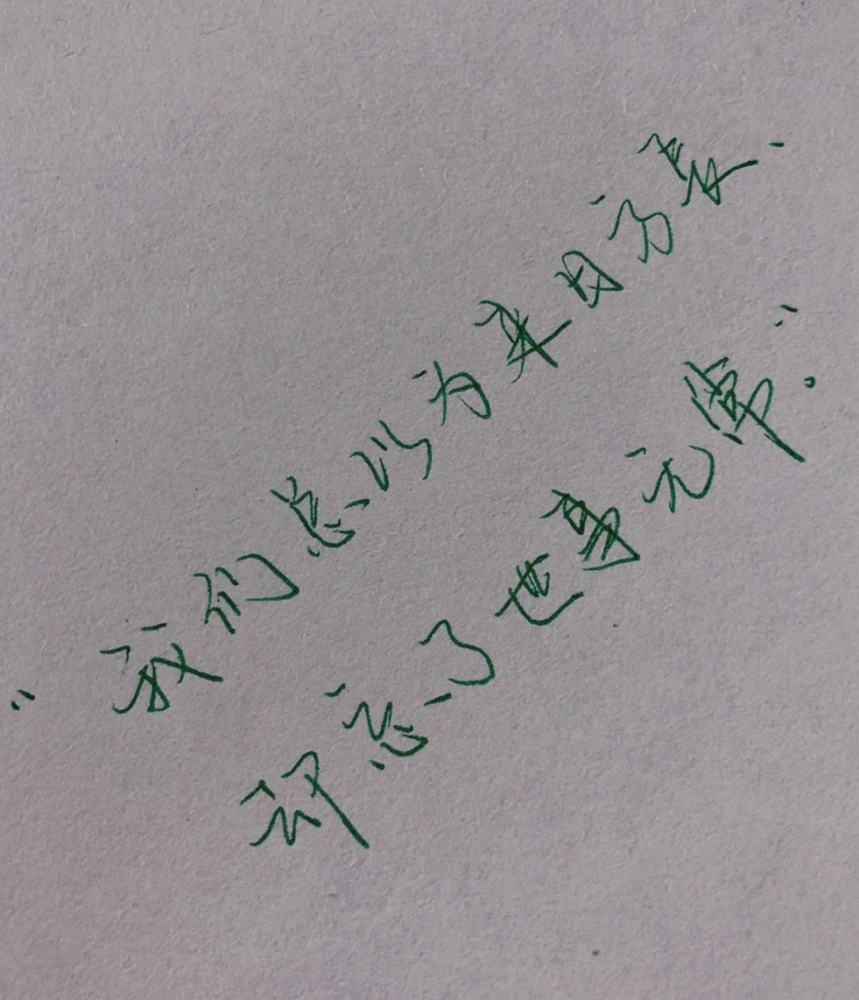 “我们总以为来日方长.
却忘了世事无常。”